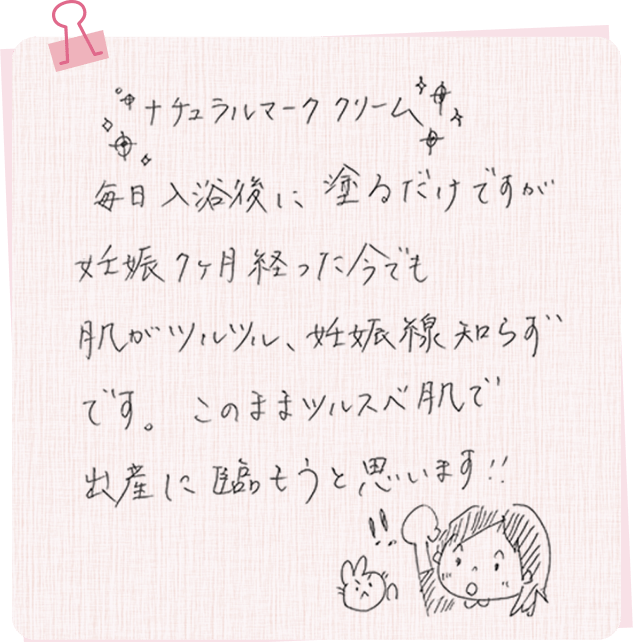 ナチュラルマーククリーム
毎日入浴後に塗るだけですが
妊娠7ヶ月経った今でも
肌がツルツル、妊娠線知らず
です。このままツルスベ肌で
出産に臨もうと思います!!
!!